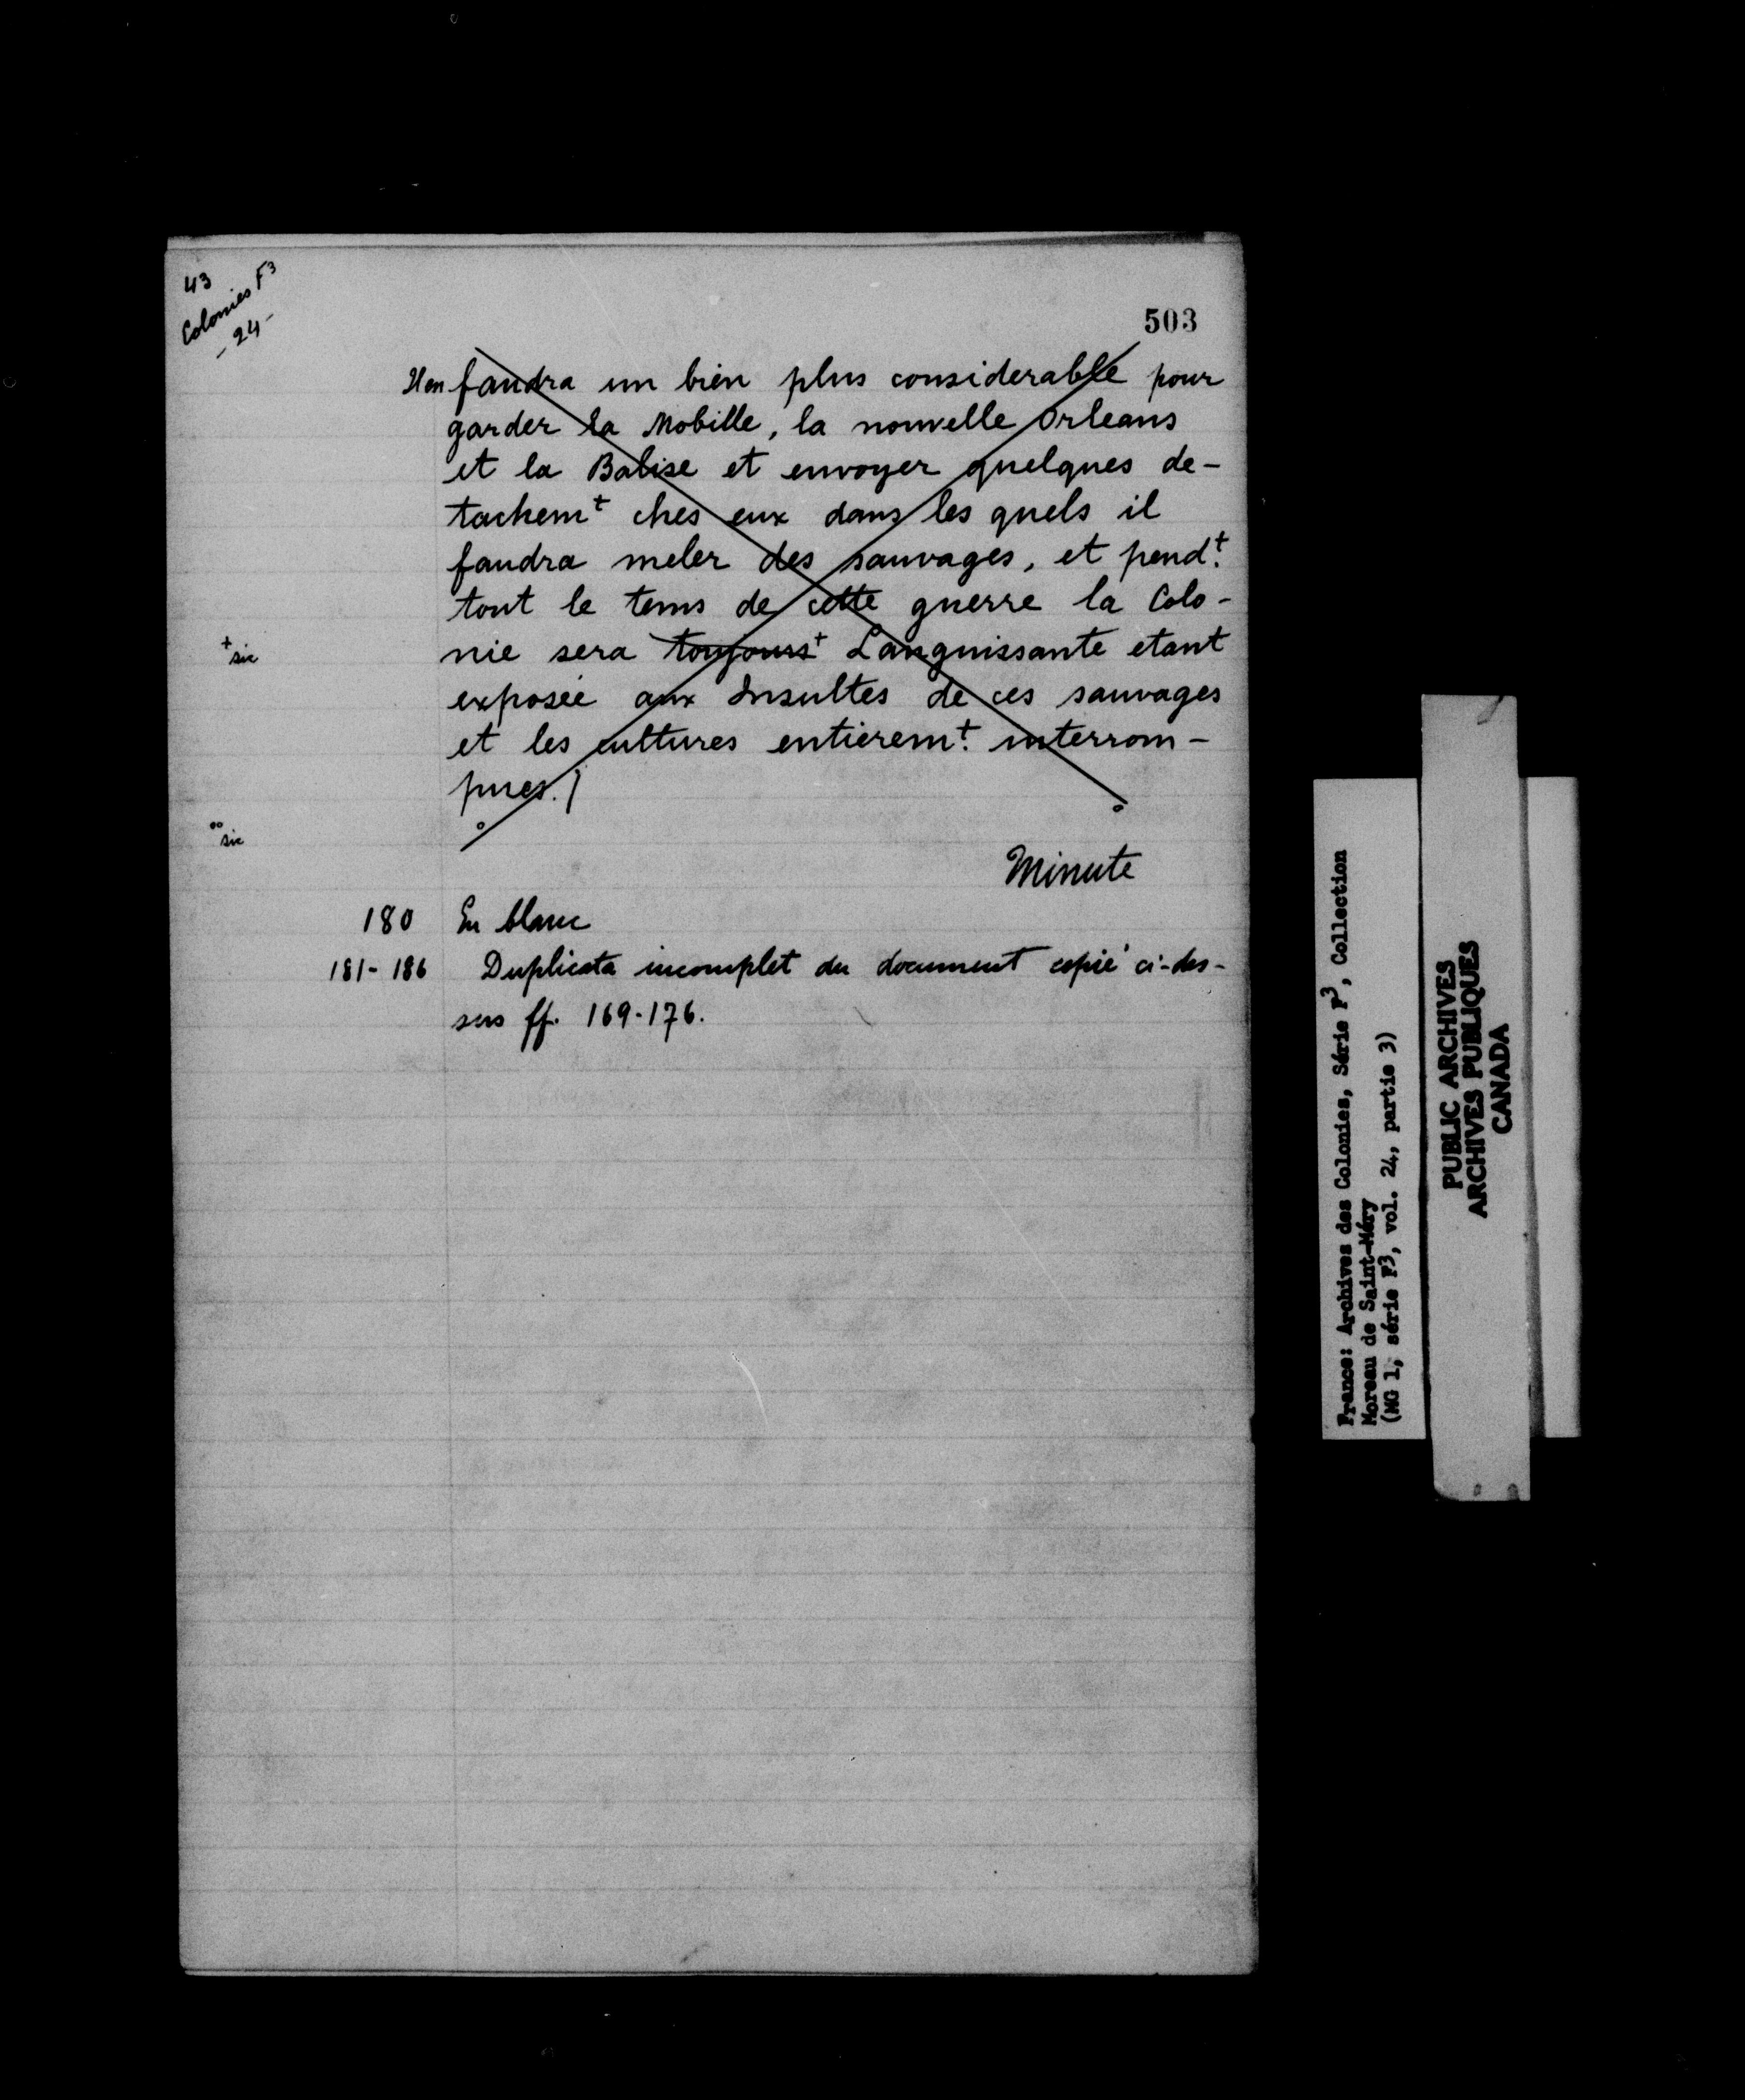 43
Colonies F³
- 24 -
503
Il en faudra un bien plus considerable pour
garder la Mobille, la nouvelle Orleans
et la Balise et envoyer quelques de-
tachemt ches eux dans les quels il
faudra meler des sauvages, et pendt.
tout le tems de cette guerre la Colo-
nie sera toujours+ Languissante etant
+ sic
exposée aux Insultes de ces sauvages
et les cultures entieremt. interrom-
pues.)
°° sic
Minute
180 En blanc
181-186 Duplicata incomplet du document copié ci-des-
sus ff. 169-176.
France: Archives des Colonies, Série F³, Collection
Moreau de Saint-Méry
(MG 1, série F³, vol. 24, partie 3)
PUBLIC ARCHIVES
ARCHIVES PUBLIQUES
CANADA